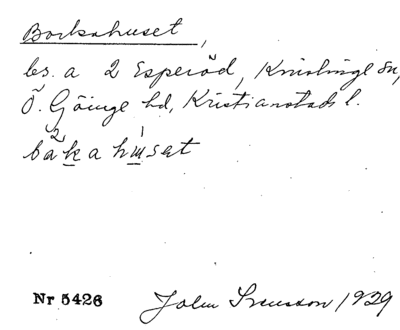 Borkahuset,
bs. a 2 Esperöd, Knislinge sn,
Ö. Göinge hd, Kristianstads l.
båkahuset
Nr 5426 John Svensson 1929